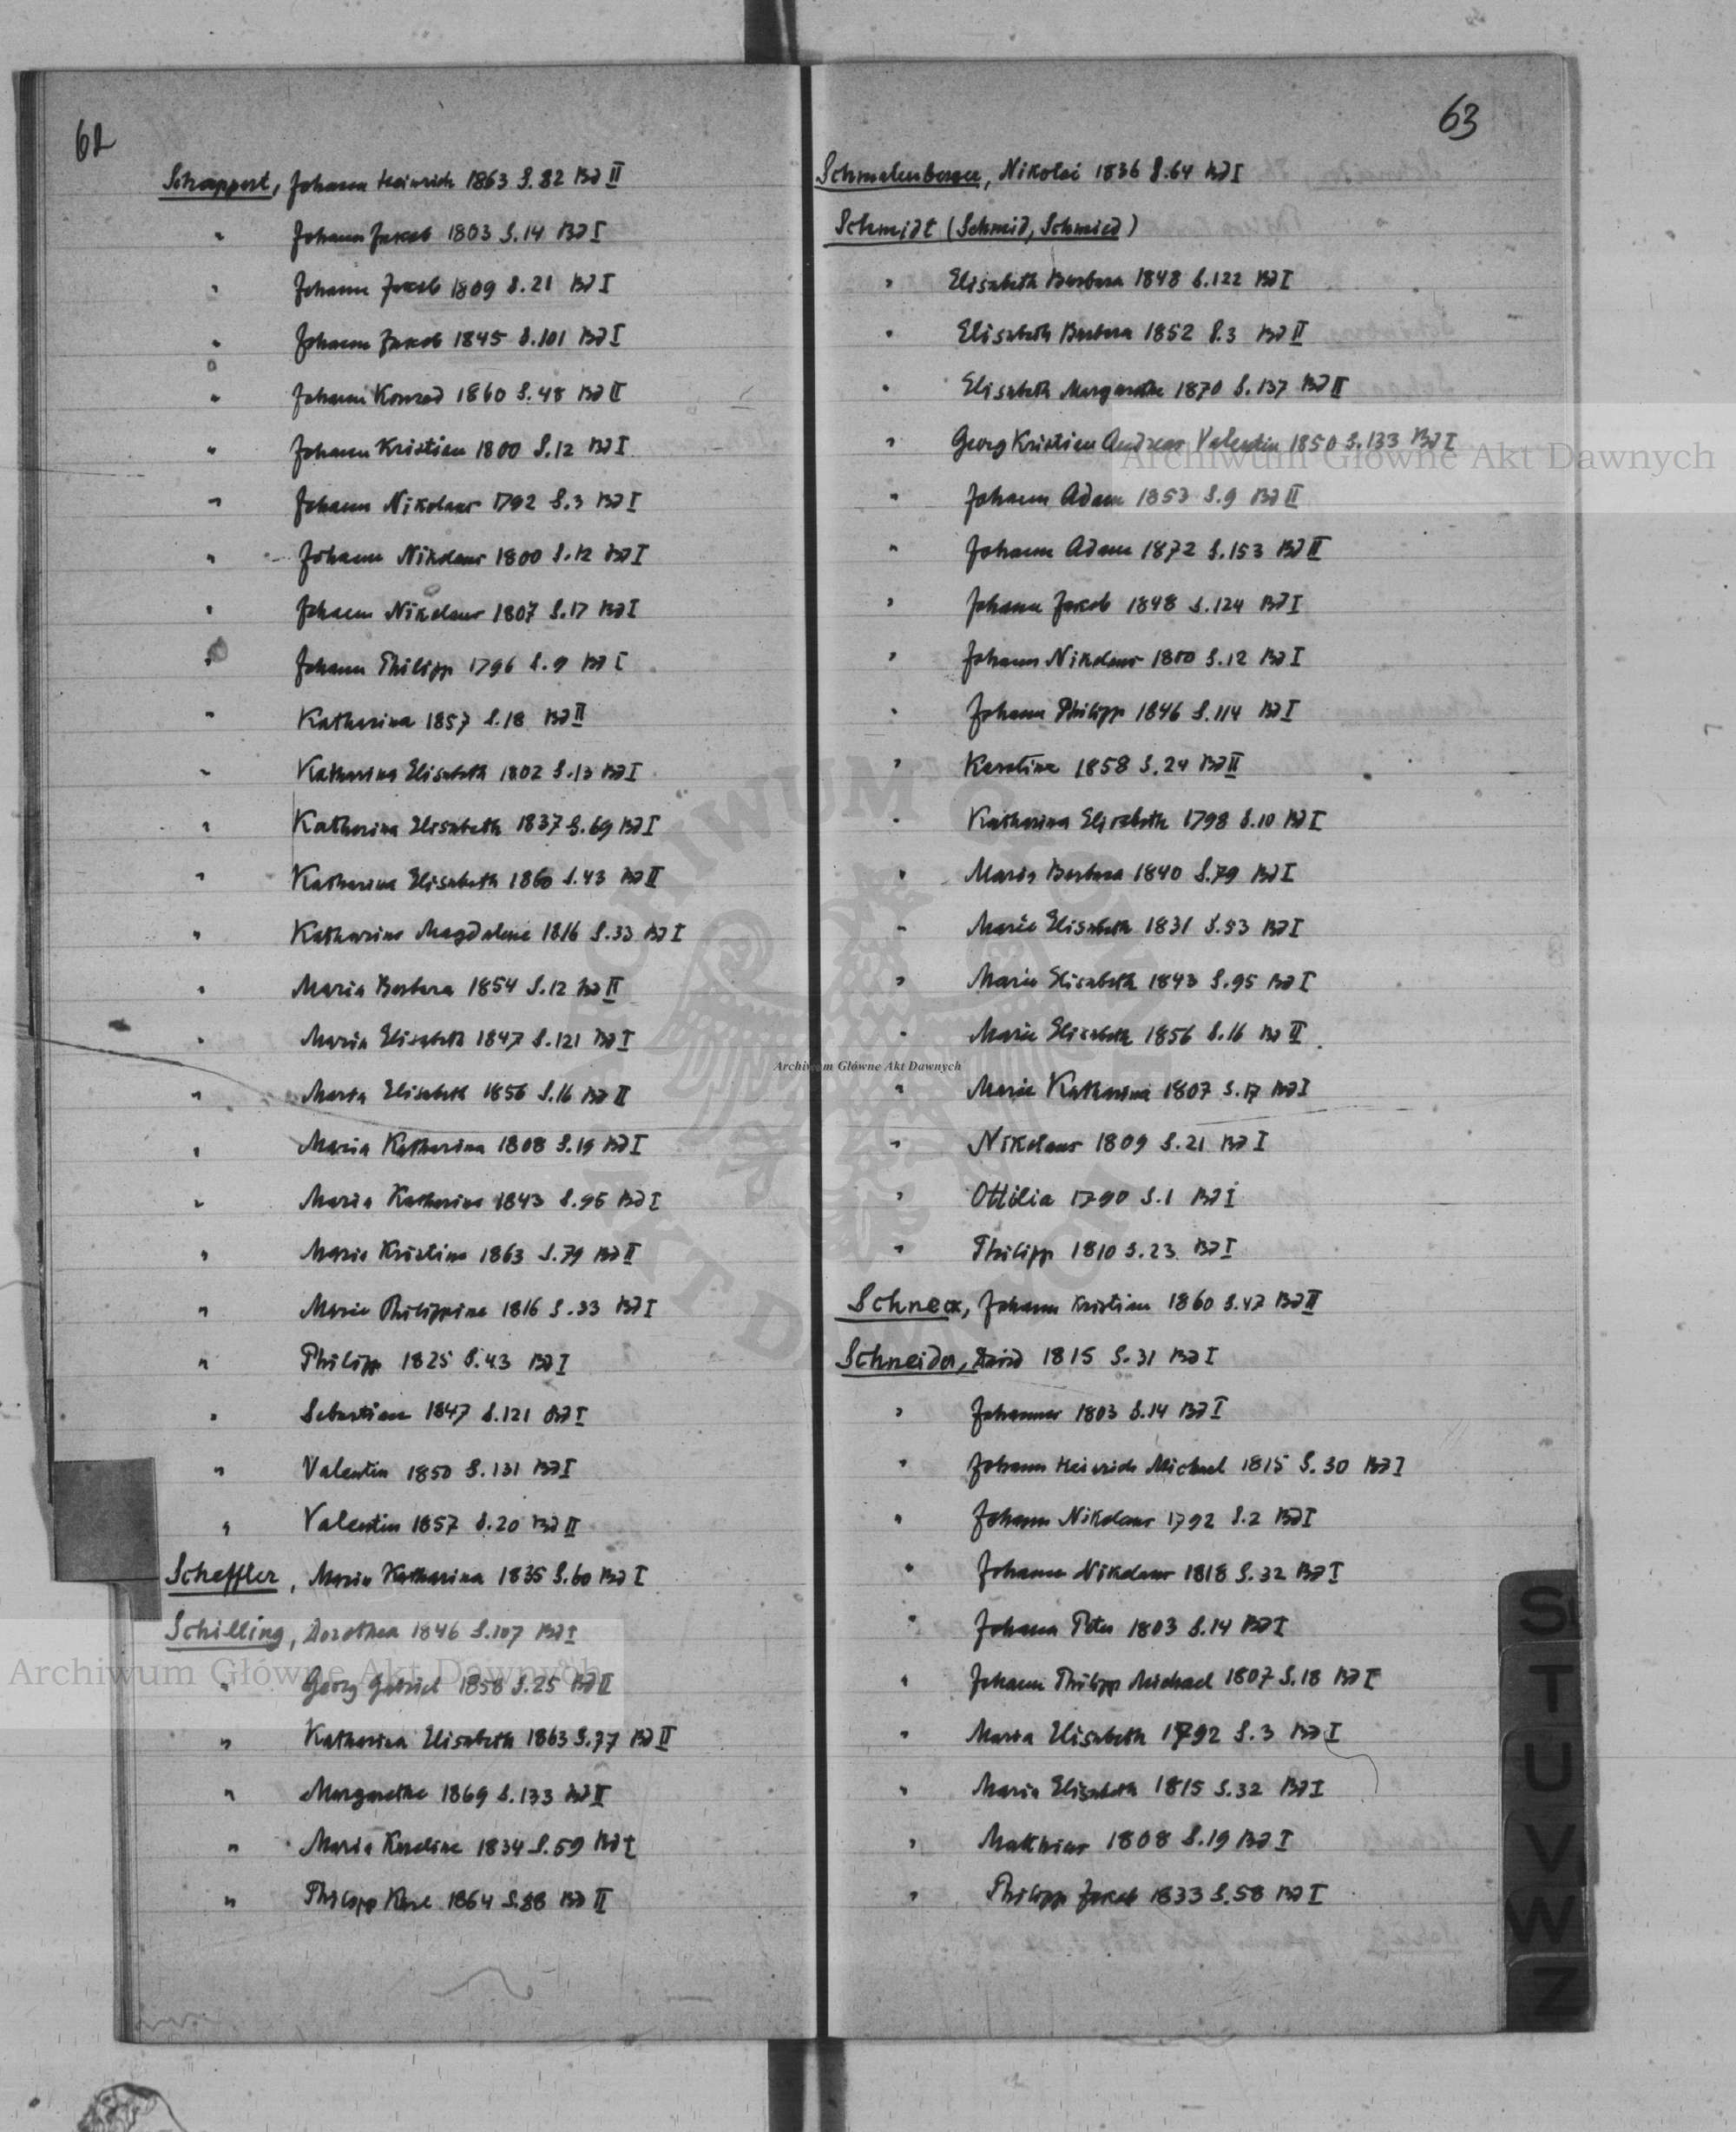 62
Schappert, Johann Heinrich 1863 S. 82 Bd II
" Johann Jakob 1803 S. 14 Bd I
" Johann Jakob 1809 S. 21 Bd I
" Johann Jakob 1845 S. 101 Bd I
" Johann Konrad 1860 S. 48 Bd II
" Johann Kristian 1800 S. 12 Bd I
" Johann Nikolaus 1792 S. 3 Bd I
" Johann Nikolaus 1800 S. 12 Bd I
" Johann Nikolaus 1807 S. 17 Bd I
" Johann Philipp 1796 S. 9 Bd I
" Katharina 1857 S. 18 Bd II
" Katharina Elisabeth 1802 S. 13 Bd I
" Katharina Elisabeth 1837 S. 69 Bd I
" Katharina Elisabeth 1860 S. 43 Bd II
" Katharina Magdalena 1816 S. 33 Bd I
" Maria Barbara 1854 S. 12 Bd II
" Maria Elisabeth 1847 S. 121 Bd I
" Maria Elisabeth 1856 S. 16 Bd II
" Maria Katharina 1808 S. 19 Bd I
" Maria Katharina 1843 S. 96 Bd I
" Maria Kristina 1863 S. 79 Bd II
" Maria Philippina 1816 S. 33 Bd I
" Philipp 1825 S. 43 Bd I
" Sebastian 1847 S. 121 Bd I
" Valentin 1850 S. 131 Bd I
" Valentin 1857 S. 20 Bd II
Scheffler, Maria Katharina 1835 S. 60 Bd I
Schilling, Dorothea 1846 S. 107 Bd I
" Georg Gabriel 1858 S. 25 Bd II
" Katharina Elisabeth 1863 S. 77 Bd II
" Margarethe 1869 S. 133 Bd II
" Maria Karoline 1834 S. 59 Bd I
" Philipp Karl 1864 S. 88 Bd II
63
Schmalenberger, Nikolai 1836 S. 64 Bd I
Schmidt (Schmid, Schmied)
" Elisabeth Barbara 1848 S. 122 Bd I
" Elisabeth Barbara 1852 S. 3 Bd II
" Elisabeth Margarethe 1870 S. 137 Bd II
" Georg Kristian Andreas Valentin 1850 S. 133 Bd I
" Johann Adam 1853 S. 9 Bd II
" Johann Adam 1872 S. 153 Bd II
" Johann Jakob 1848 S. 124 Bd I
" Johann Nikolaus 1800 S. 12 Bd I
" Johann Philipp 1846 S. 114 Bd I
" Karolina 1858 S. 24 Bd II
" Katharina Elisabeth 1798 S. 10 Bd I
" Maria Barbara 1840 S. 79 Bd I
" Marie Elisabeth 1831 S. 53 Bd I
" Marie Elisabeth 1843 S. 95 Bd I
" Marie Elisabeth 1856 S. 16 Bd II
" Marie Katharina 1807 S. 17 Bd I
" Nikolaus 1809 S. 21 Bd I
" Ottilia 1790 S. 1 Bd I
" Philipp 1810 S. 23 Bd I
Schneck, Johann Kristian 1860 S. 47 Bd II
Schneider, David 1815 S. 31 Bd I
" Johannes 1803 S. 14 Bd I
" Johann Heinrich Michael 1815 S. 30 Bd I
" Johann Nikolaus 1792 S. 2 Bd I
" Johann Nikolaus 1818 S. 32 Bd I
" Johann Peter 1803 S. 14 Bd I
" Johann Philipp Michael 1807 S. 18 Bd I
" Maria Elisabeth 1792 S. 3 Bd I
" Maria Elisabeth 1815 S. 32 Bd I
" Mathias 1808 S. 19 Bd I
" Philipp Jakob 1833 S. 58 Bd I
S
T
U
V
W
Z
Archiwum Główne Akt Dawnych
Archiwum Główne Akt Dawnych
Archiwum Główne Akt Dawnych
ARCHIWUM GŁÓWNE AKT DAWNYCH